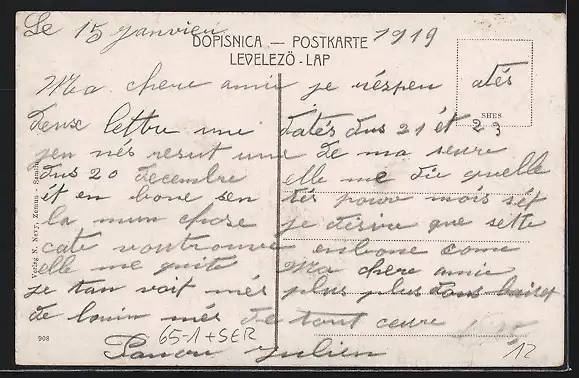 Le 15 janvier 1919
DOPISNICA — POSTKARTE
LEVELEZÖ-LAP
Ma chere amie je réspen atés
SHES
deux lettre une datés dus 21 ét 23
jen nés resut une de ma seure
dus 20 decembre elle me die quelle
ét en bone sen tés pour mois séf
la mun chose je désire que sette
cate vontrouve enbone come
elle me quite Ma chere amie
je tan voif més plus plus dous baiser
de louin més de tout ceure
Julien
65-1+SER
12
908
Verlag N. Nevy, Zemun - Semlin